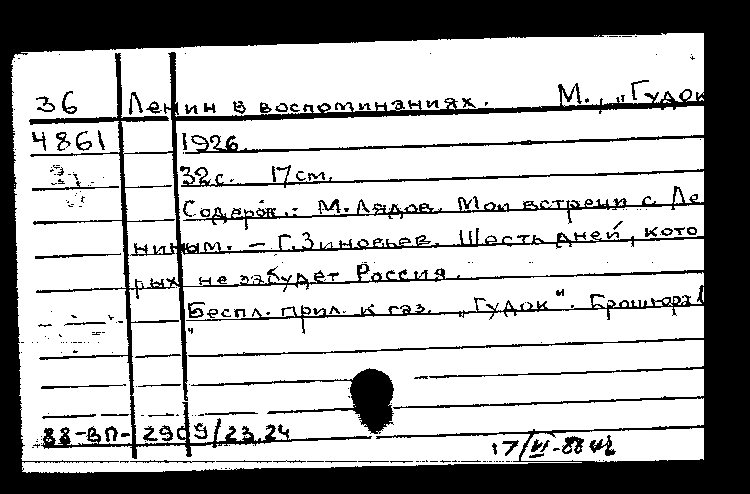 36 Ленин в воспоминаниях. М., „Гудок
4861 1926.
32с. 17см.
Содерж.: М. Лядов. Мои встречи с Ле
ниным. – Г. Зиновьев. Шесть дней, кото
рых не забудет Россия.
Беспл. прил. к газ. „Гудок“. Брошюра
88-ВП-2909/23.24
17/VI-88